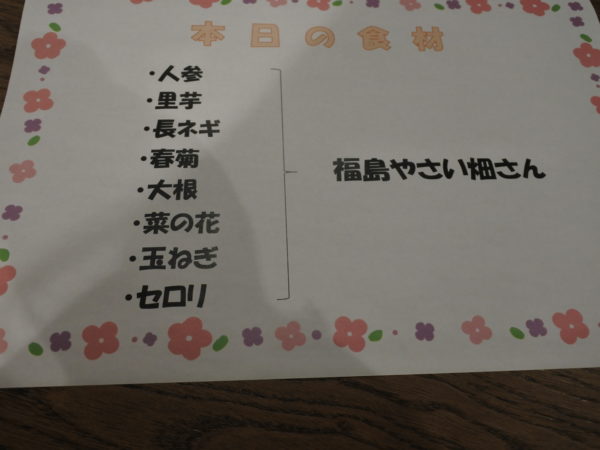 本日の食材
・人参
・里芋
・長ネギ
・春菊
・大根
・菜の花
・玉ねぎ
・セロリ
福島やさい畑さん